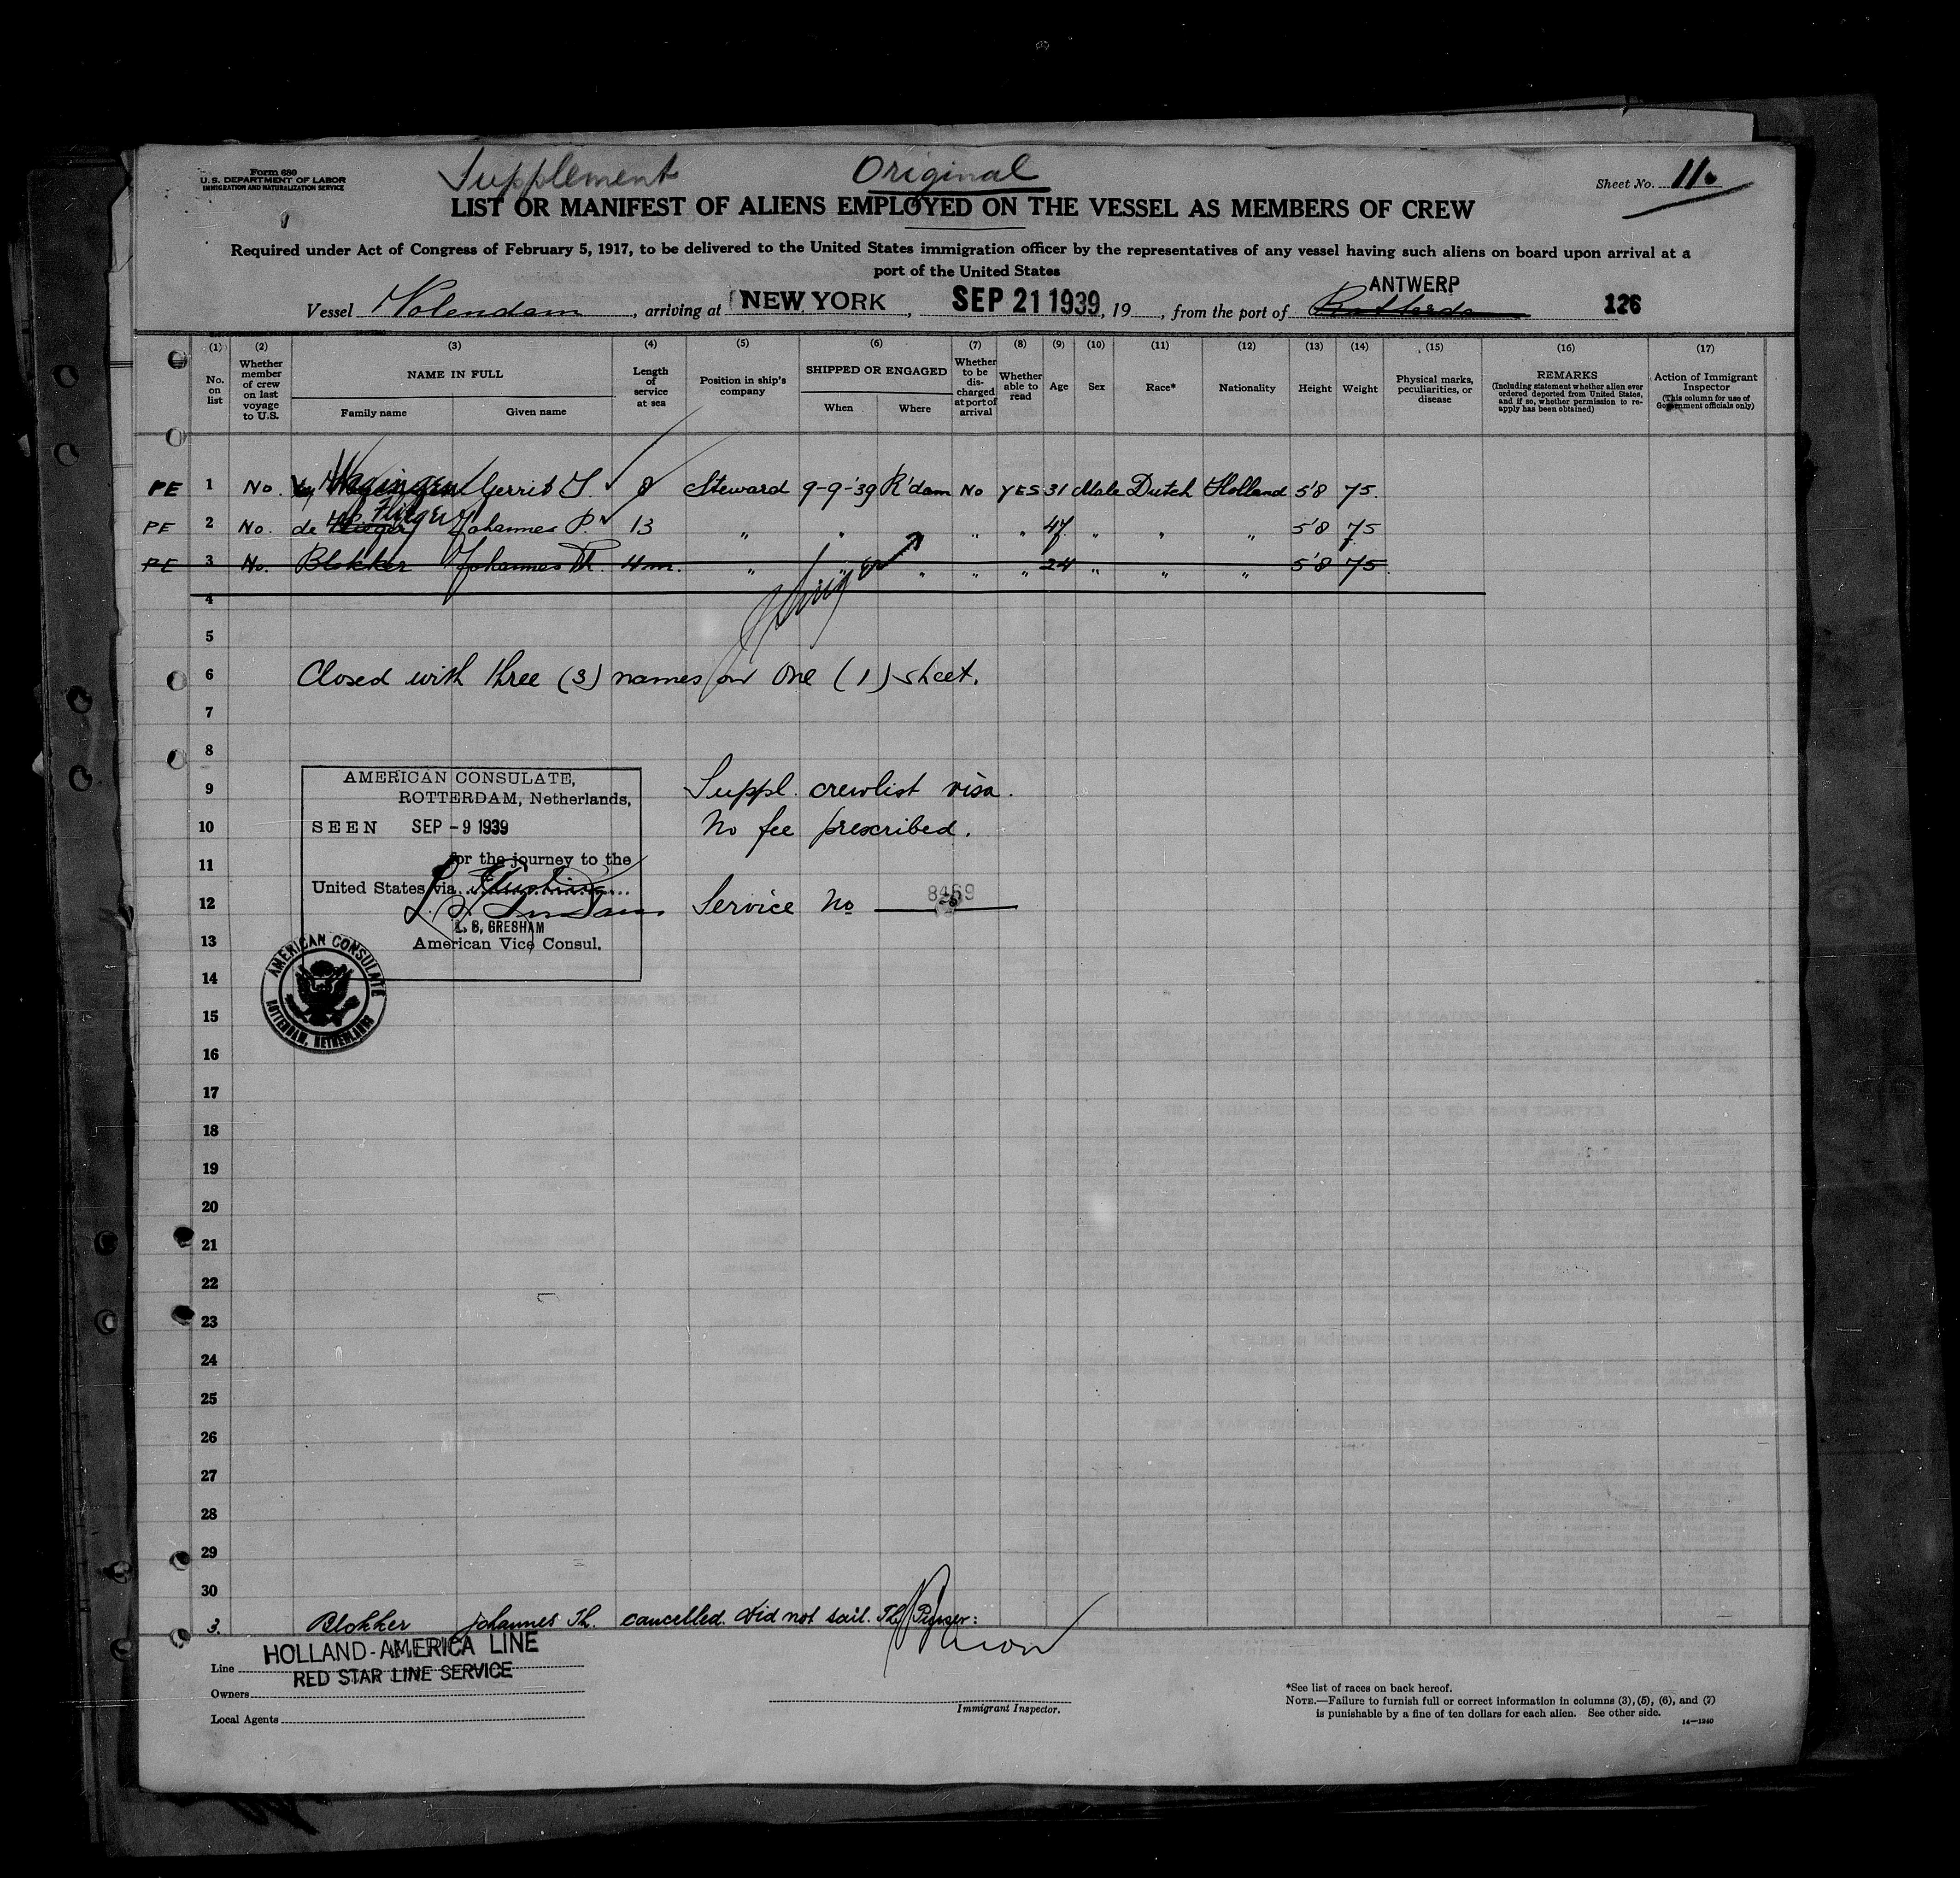 Form 680
U. S. DEPARTMENT OF LABOR
IMMIGRATION AND NATURALIZATION SERVICE
Supplement
Original
Sheet No. 11.
LIST OR MANIFEST OF ALIENS EMPLOYED ON THE VESSEL AS MEMBERS OF CREW
Required under Act of Congress of February 5, 1917, to be delivered to the United States immigration officer by the representatives of any vessel having such aliens on board upon arrival at a
port of the United States
ANTWERP
Vessel Volendam, arriving at NEW YORK, SEP 21 1939, 19, from the port of Rotterdam 126
(1) (2) (3) (4) (5) (6) (7) (8) (9) (10) (11) (12) (13) (14) (15) (16) (17)
No. on list
Whether member of crew on last voyage to U.S.
NAME IN FULL
Family name Given name
Length of service at sea
Position in ship's company
SHIPPED OR ENGAGED
When Where
Whether to be discharged at port of arrival
Whether able to read
Age
Sex
Race*
Nationality
Height
Weight
Physical marks, peculiarities, or disease
REMARKS
(Including statement whether alien ever ordered deported from United States, and if so, whether permission to reapply has been obtained)
Action of Immigrant Inspector
(This column for use of Government officials only)
PE 1 No. Gerrit 8 Steward 9-9-'39 R'dam No YES 31 Male Dutch Holland 5'8 75.
PE 2 No. de Flieger Johannes P. 13 " " " " 47 " " " 5'8 75
PE 3 No. Blokker Johannes Th. 4 m. " " " " " 24 " " " 5'8 75
4
5
6 Closed with three (3) names on one (1) sheet.
7
8
AMERICAN CONSULATE,
ROTTERDAM, Netherlands,
9 Suppl. crewlist visa.
SEEN SEP - 9 1939
10 No fee prescribed.
11
for the journey to the
United States via
12 Service No 8469
L. S. GRESHAM
13
American Vice Consul.
AMERICAN CONSULATE
ROTTERDAM, NETHERLANDS
14
15
16
17
18
19
20
21
22
23
24
25
26
27
28
29
30
3. Blokker Johannes Th. cancelled. Did not sail. The Purser:
HOLLAND-AMERICA LINE
Line
RED STAR LINE SERVICE
Owners
Local Agents
Immigrant Inspector.
*See list of races on back hereof.
NOTE.—Failure to furnish full or correct information in columns (3), (5), (6), and (7)
is punishable by a fine of ten dollars for each alien. See other side.
14—1240